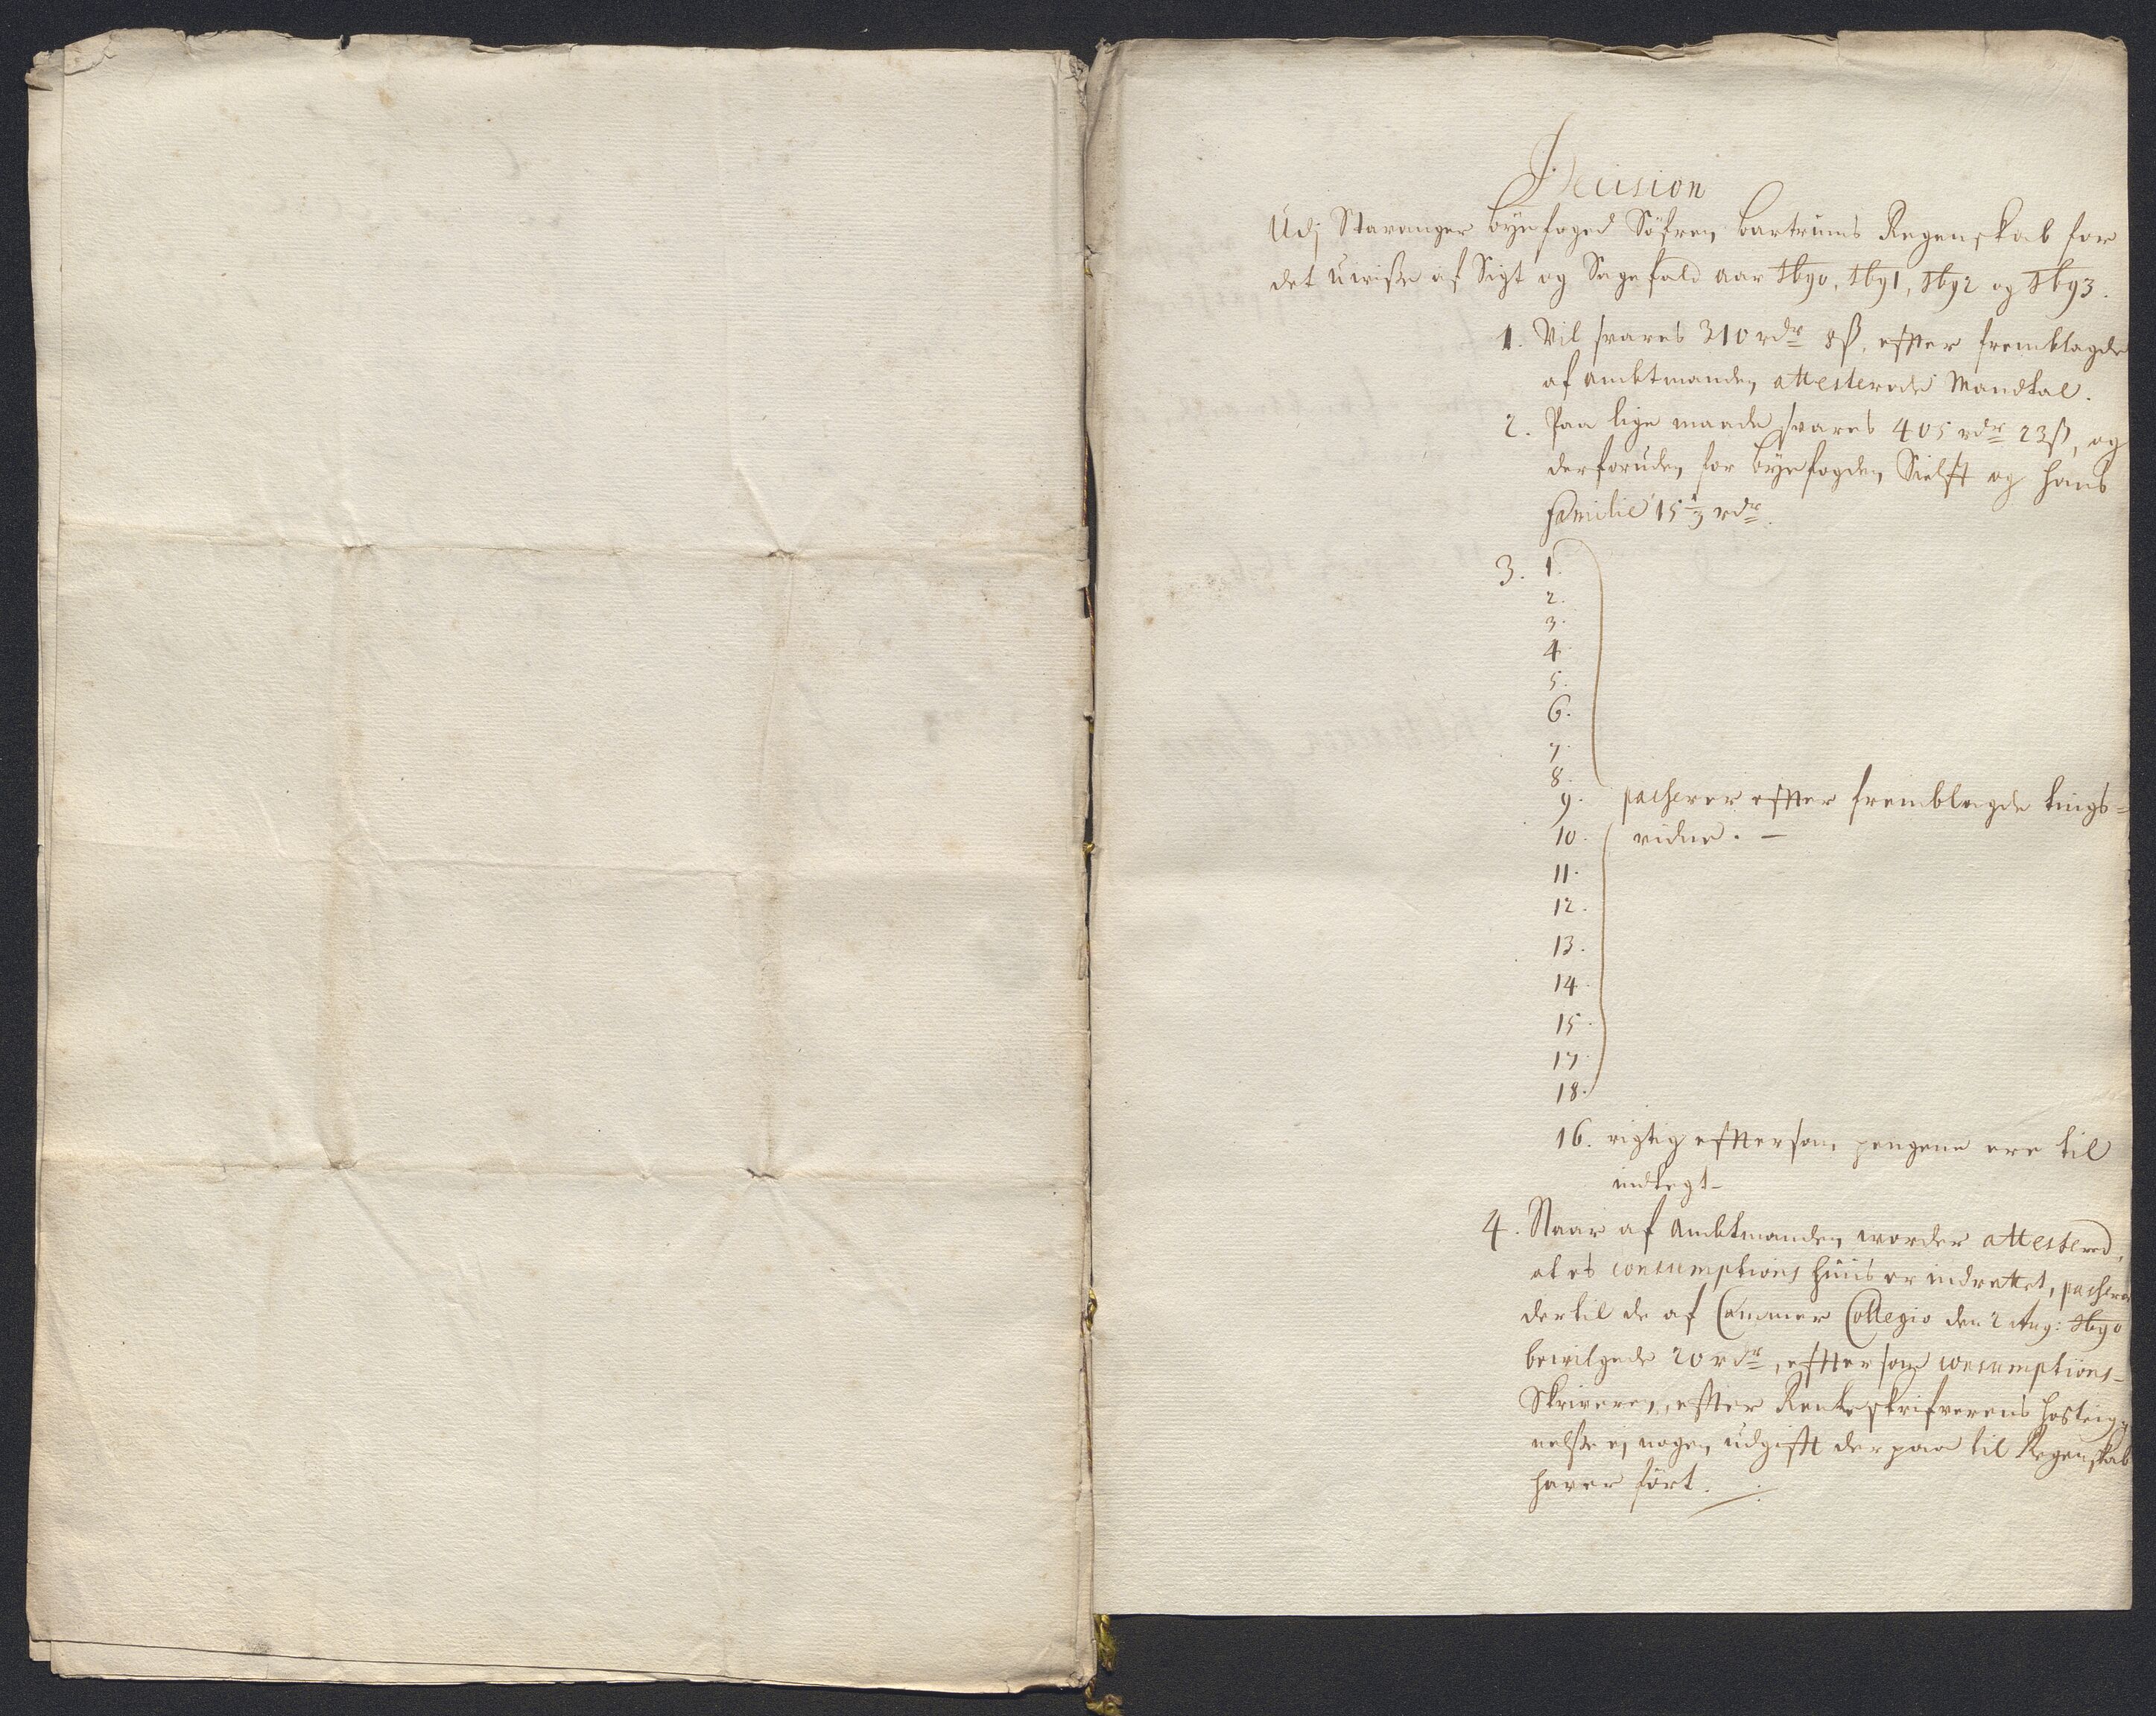 Decision
Udj Stavanger byefoged Söfren bartrums Regenskab for
det uwisse af Sigt og Sagefald aar 1690, 1691, 1692 og 1693.
1. Vil svares 310 rdr 8ß, effter fremblagde
af ambtmanden attesterede Mandtal.
2. Paa lige maade svares 405 rdr 23ß, og
derforuden for byefogden Sielff og hans
familie 15 1/3 rdr.
3. 1.
2.
3.
4.
5.
6.
7.
8.
9. passerer effter fremblagde tings=
10. vidne. –
11.
12.
13.
14.
15.
17.
18.
16. rigtig efftersom pengene ere til
indtegt –
4. Naar af Ambtmanden worder attestered,
at et consumptions huus er indrettet, passerer
dertil de af Cammer Collegio den 2 Aug: 1690
bevilgede 20 rdr, efftersom consumptions-
Skriveren, effter Renteskrifverens
nelse ej nogen udgifft der paa til Regenskab
haver fört.